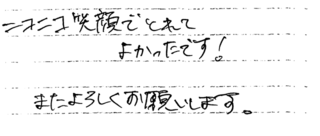 ニコニコ笑顔でとれて
よかったです!
またよろしくお願いします。